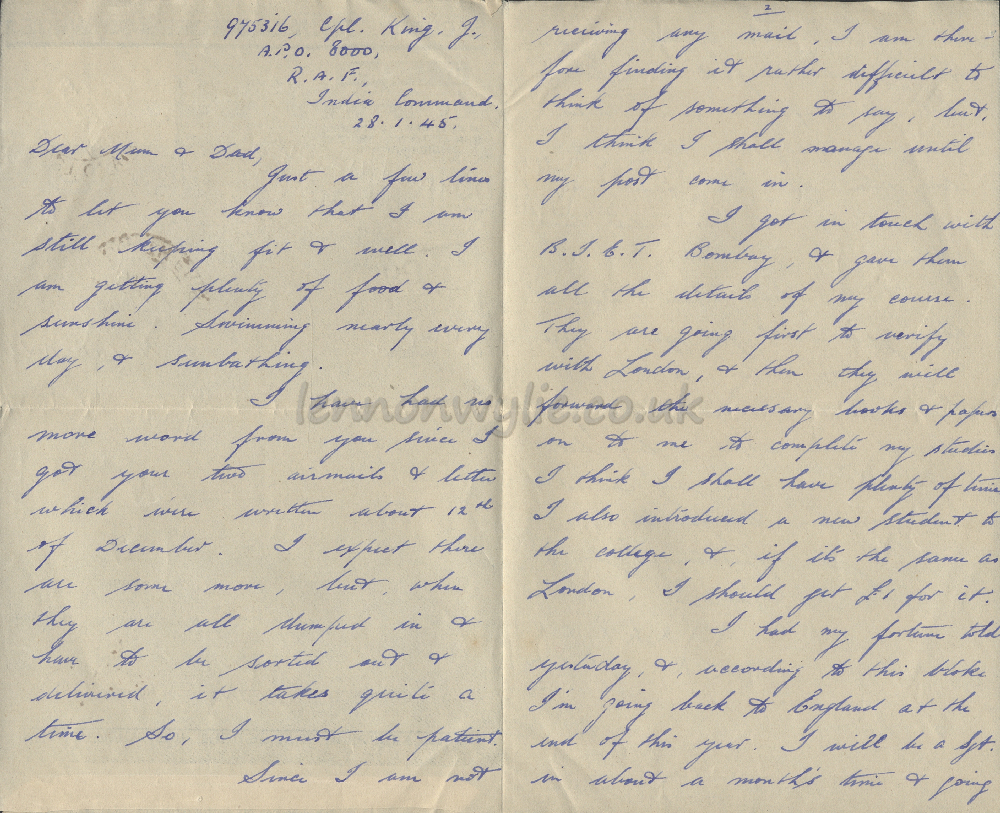 975316, Cpl. King. J.,
A.P.O. 8000,
R.A.F.,
India Command.
28.1.45.
Dear Mum & Dad,
Just a few lines
to let you know that I am
still keeping fit & well. I
am getting plenty of food &
sunshine. Swimming nearly every
day, & sunbathing.
I have had no
more word from you since I
got your two airmails & letter
which were written about 12th
of December. I expect there
are some more, but, when
they are all dumped in &
have to be sorted out &
delivered, it takes quite a
time. So, I must be patient.
Since I am not
2
reciving any mail, I am there-
fore finding it rather difficult to
think of something to say, but,
I think I shall manage until
my post come in.
I got in touch with
B.I.E.T. Bombay, & gave them
all the details of my course.
They are going first to verify
with London, & then they will
forward the necesary books & papers
on to me to complete my studies
I think I shall have plenty of time
I also introduced a new student to
the college, &, if it's the same as
London, I should get £1 for it.
I had my fortune told
yesterday, &, according to this bloke
I'm going back to England at the
end of this year. I will be a Sgt.
in about a month's time & going
lennonwylie.co.uk